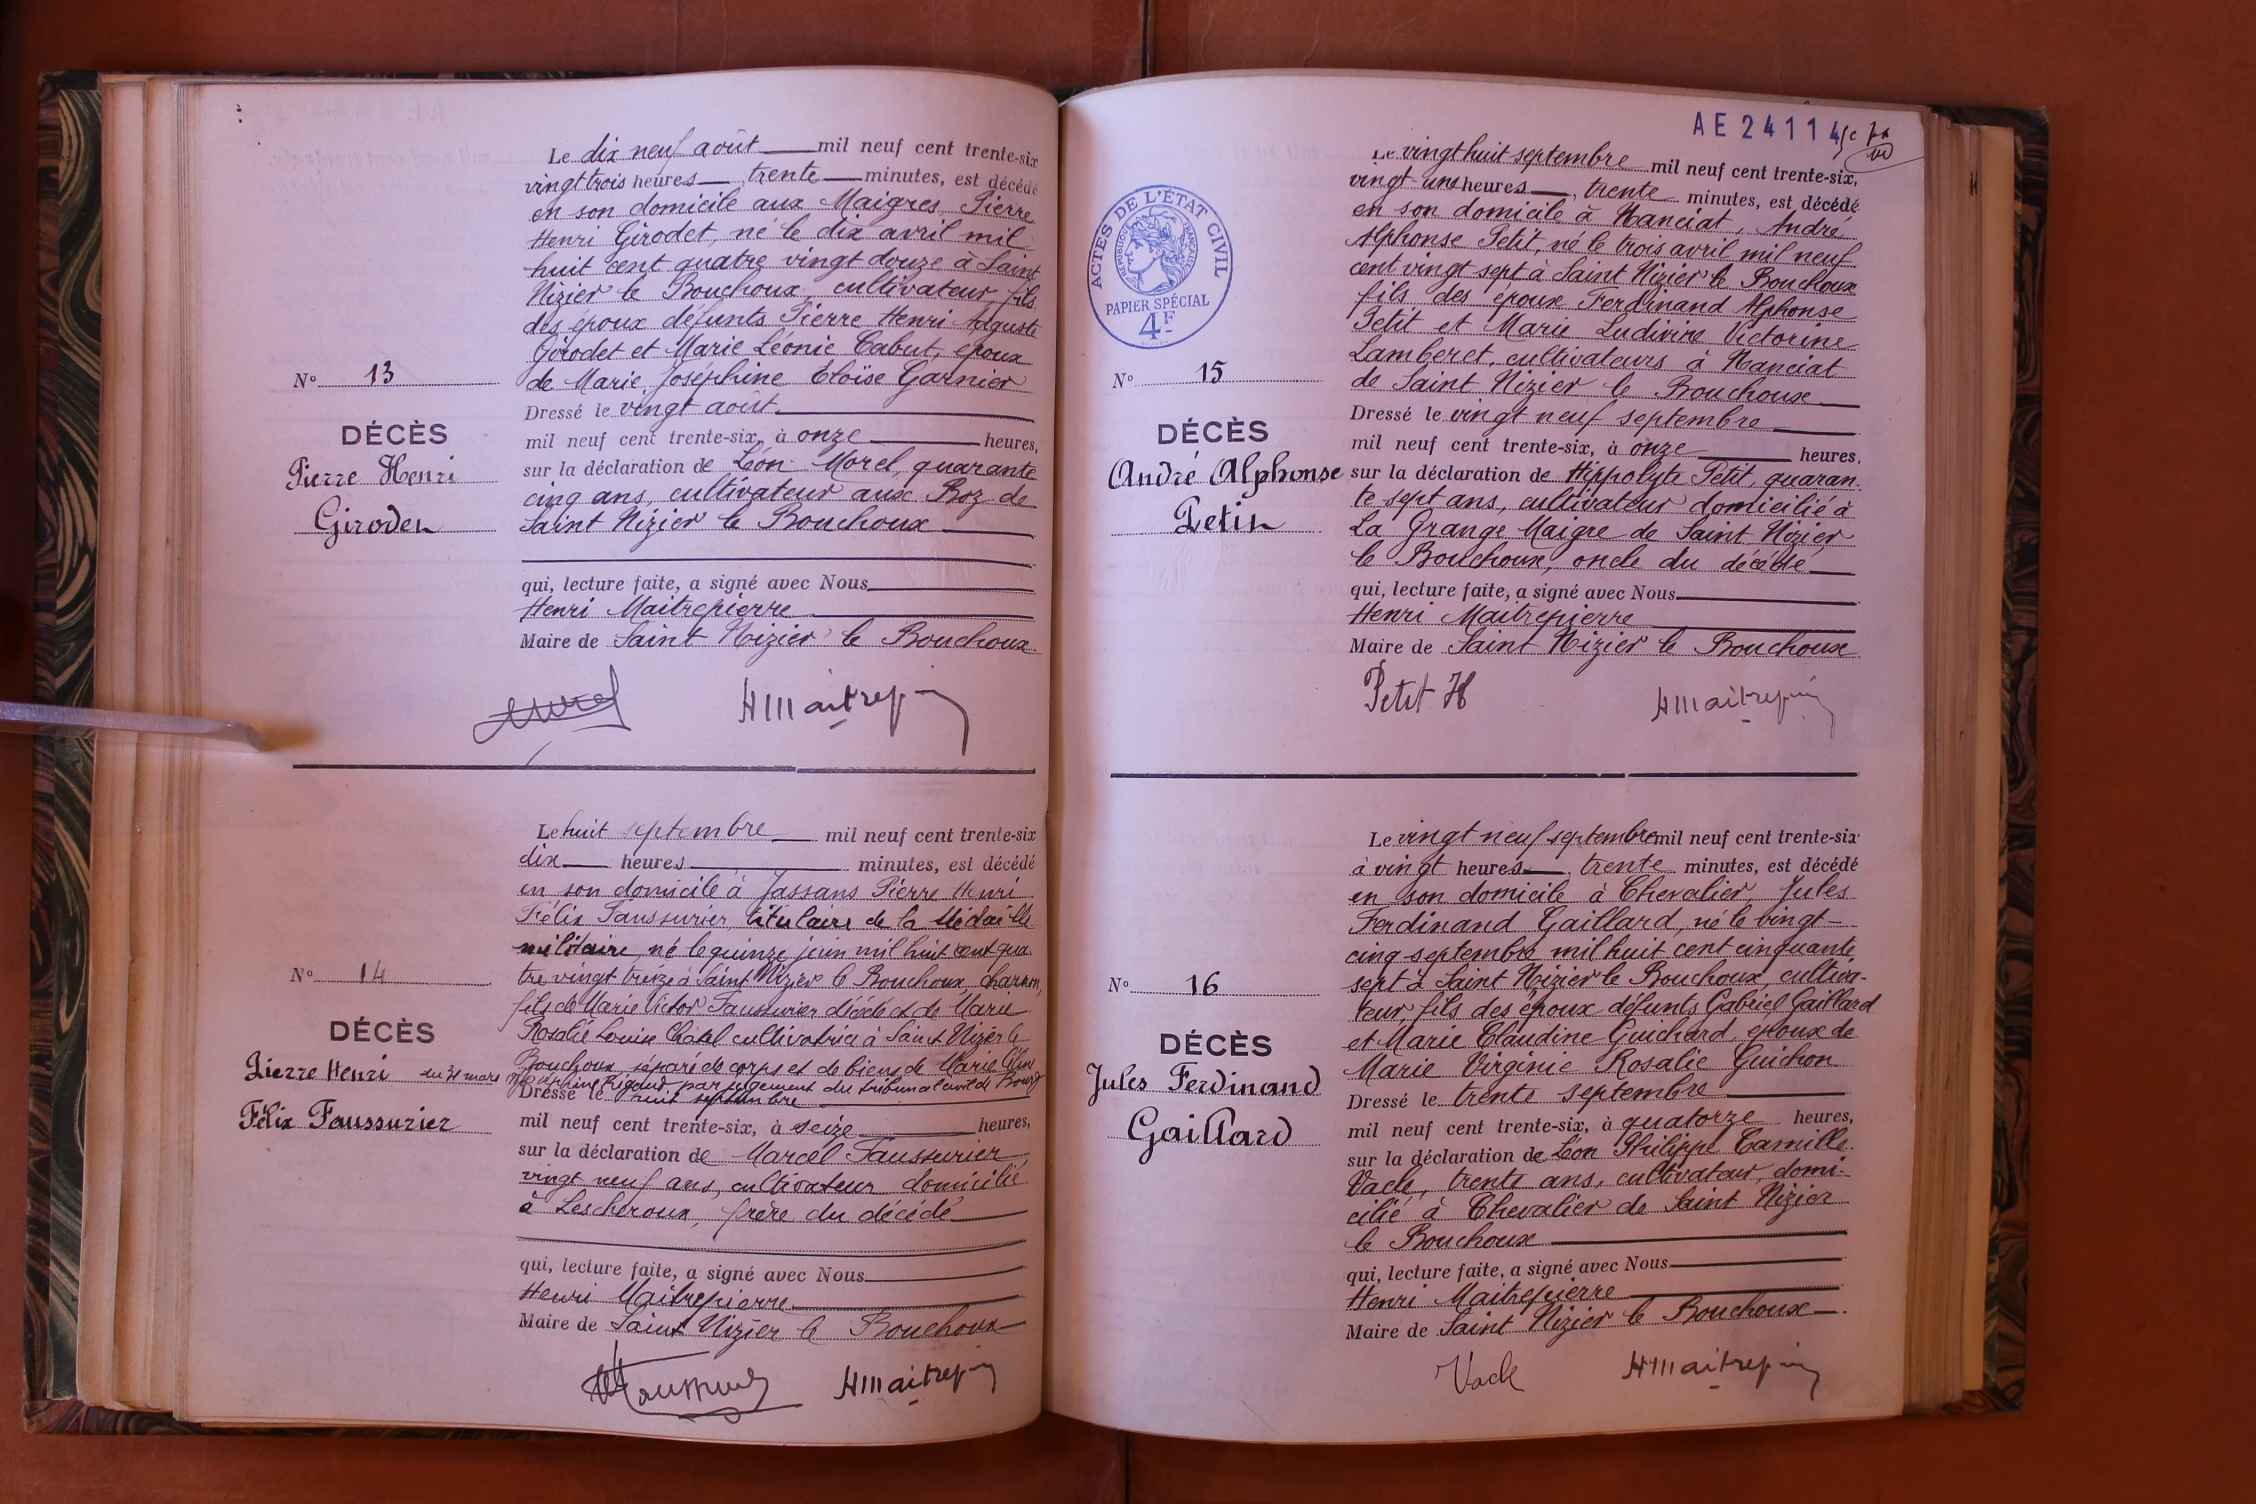 Le dix neuf août mil neuf cent trente-six
vingt trois heures, trente minutes, est décédé
en son domicile aux Maigres Pierre
Henri Girodet, né le dix avril mil
huit cent quatre vingt douze à Saint
Nizier le Bouchoux cultivateur, fils
des époux défunts Pierre Henri Auguste
Girodet et Marie Léonie Cabut, époux
de Marie Joséphine Eloïse Garnier
Dressé le vingt août.
mil neuf cent trente-six, à onze heures,
sur la déclaration de Léon Morel, quarante
cinq ans, cultivateur aux Broz de
Saint Nizier le Bouchoux
qui, lecture faite, a signé avec Nous
Henri Maitrepierre
Maire de Saint Nizier le Bouchoux
N° 13
DÉCÈS
Pierre Henri
Giroden
Morel HMaitrepi
Le huit septembre mil neuf cent trente-six
dix heures minutes, est décédé
en son domicile à Jassans Pierre Henri
Félix Faussurier, titulaire de la Médaille
militaire, né le quinze juin mil huit cent qua
tre vingt treize à Saint Nizier le Bouchoux, charron,
fils de Marie Victor Faussurier décédé et de Marie
Rosalie Louise Chatel cultivatrice à Saint Nizier le
Bouchoux séparé de corps et de biens de Marie
Joséphine Rigaud par jugement du tribunal civil de Bourg
du 31 mars
Dressé le huit septembre
mil neuf cent trente-six, à seize heures,
sur la déclaration de Marcel Faussurier,
vingt neuf ans, cultivateur domicilié
à Lescheroux, frère du décédé
qui, lecture faite, a signé avec Nous
Henri Maitrepierre
Maire de Saint Nizier le Bouchoux
N° 14
DÉCÈS
Pierre Henri
Félix Faussurier
Faussurier HMaitrepi
AE 24114
ACTES DE L'ÉTAT CIVIL
RÉPUBLIQUE FRANÇAISE
PAPIER SPÉCIAL
4F
Le vingt huit septembre mil neuf cent trente-six,
vingt-une heures, trente minutes, est décédé
en son domicile à Nanciat, André
Alphonse Petit, né le trois avril mil neuf
cent vingt sept à Saint Nizier le Bouchoux
fils des époux Ferdinand Alphonse
Petit et Marie Ludivine Victorine
Lamberet, cultivateurs à Nanciat
de Saint Nizier le Bouchoux
Dressé le vingt neuf septembre
mil neuf cent trente-six, à onze heures,
sur la déclaration de Hippolyte Petit, quaran
te sept ans, cultivateur domicilié à
La Grange Maigre de Saint Nizier
le Bouchoux, oncle du décédé
qui, lecture faite, a signé avec Nous
Henri Maitrepierre
Maire de Saint Nizier le Bouchoux
N° 15
DÉCÈS
André Alphonse
Petin
Petit H HMaitrepi
Le vingt neuf septembre mil neuf cent trente-six
à vingt heures, trente minutes, est décédé
en son domicile à Chevalier, Jules
Ferdinand Gaillard, né le vingt-
cinq septembre mil huit cent cinquante
sept à Saint Nizier le Bouchoux, cultiva-
teur, fils des époux défunts Gabriel Gaillard
et Marie Claudine Guichard, époux de
Marie Virginie Rosalie Guichon
Dressé le trente septembre
mil neuf cent trente-six, à quatorze heures,
sur la déclaration de Léon Philippe Camille
Vacle, trente ans, cultivateur, domi-
cilié à Chevalier de Saint Nizier
le Bouchoux
qui, lecture faite, a signé avec Nous
Henri Maitrepierre
Maire de Saint Nizier le Bouchoux
N° 16
DÉCÈS
Jules Ferdinand
Gaillard
Vacle HMaitrepi